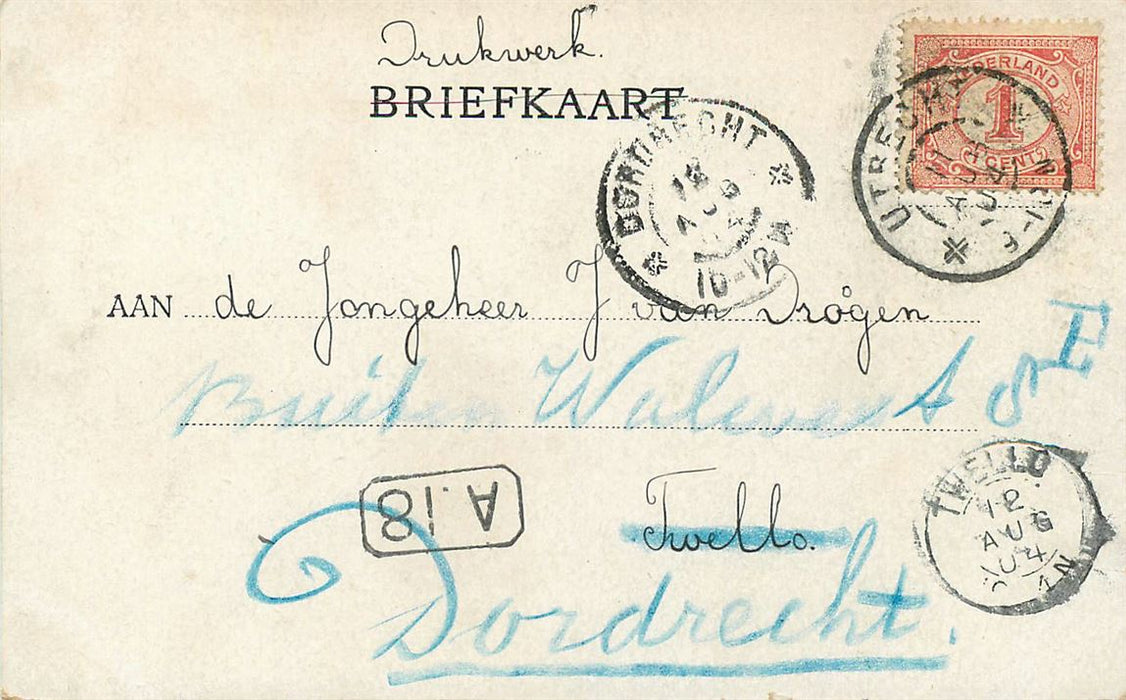 Drukwerk.
BRIEFKAART
NEDERLAND
1
CENT
UTRECHT
AUG
DORDRECHT
AUG
10-12
AAN de Jongeheer J van Drögen
Buiten Walevest
Twello.
TWELLO
12
AUG
04
A.18
Dordrecht.